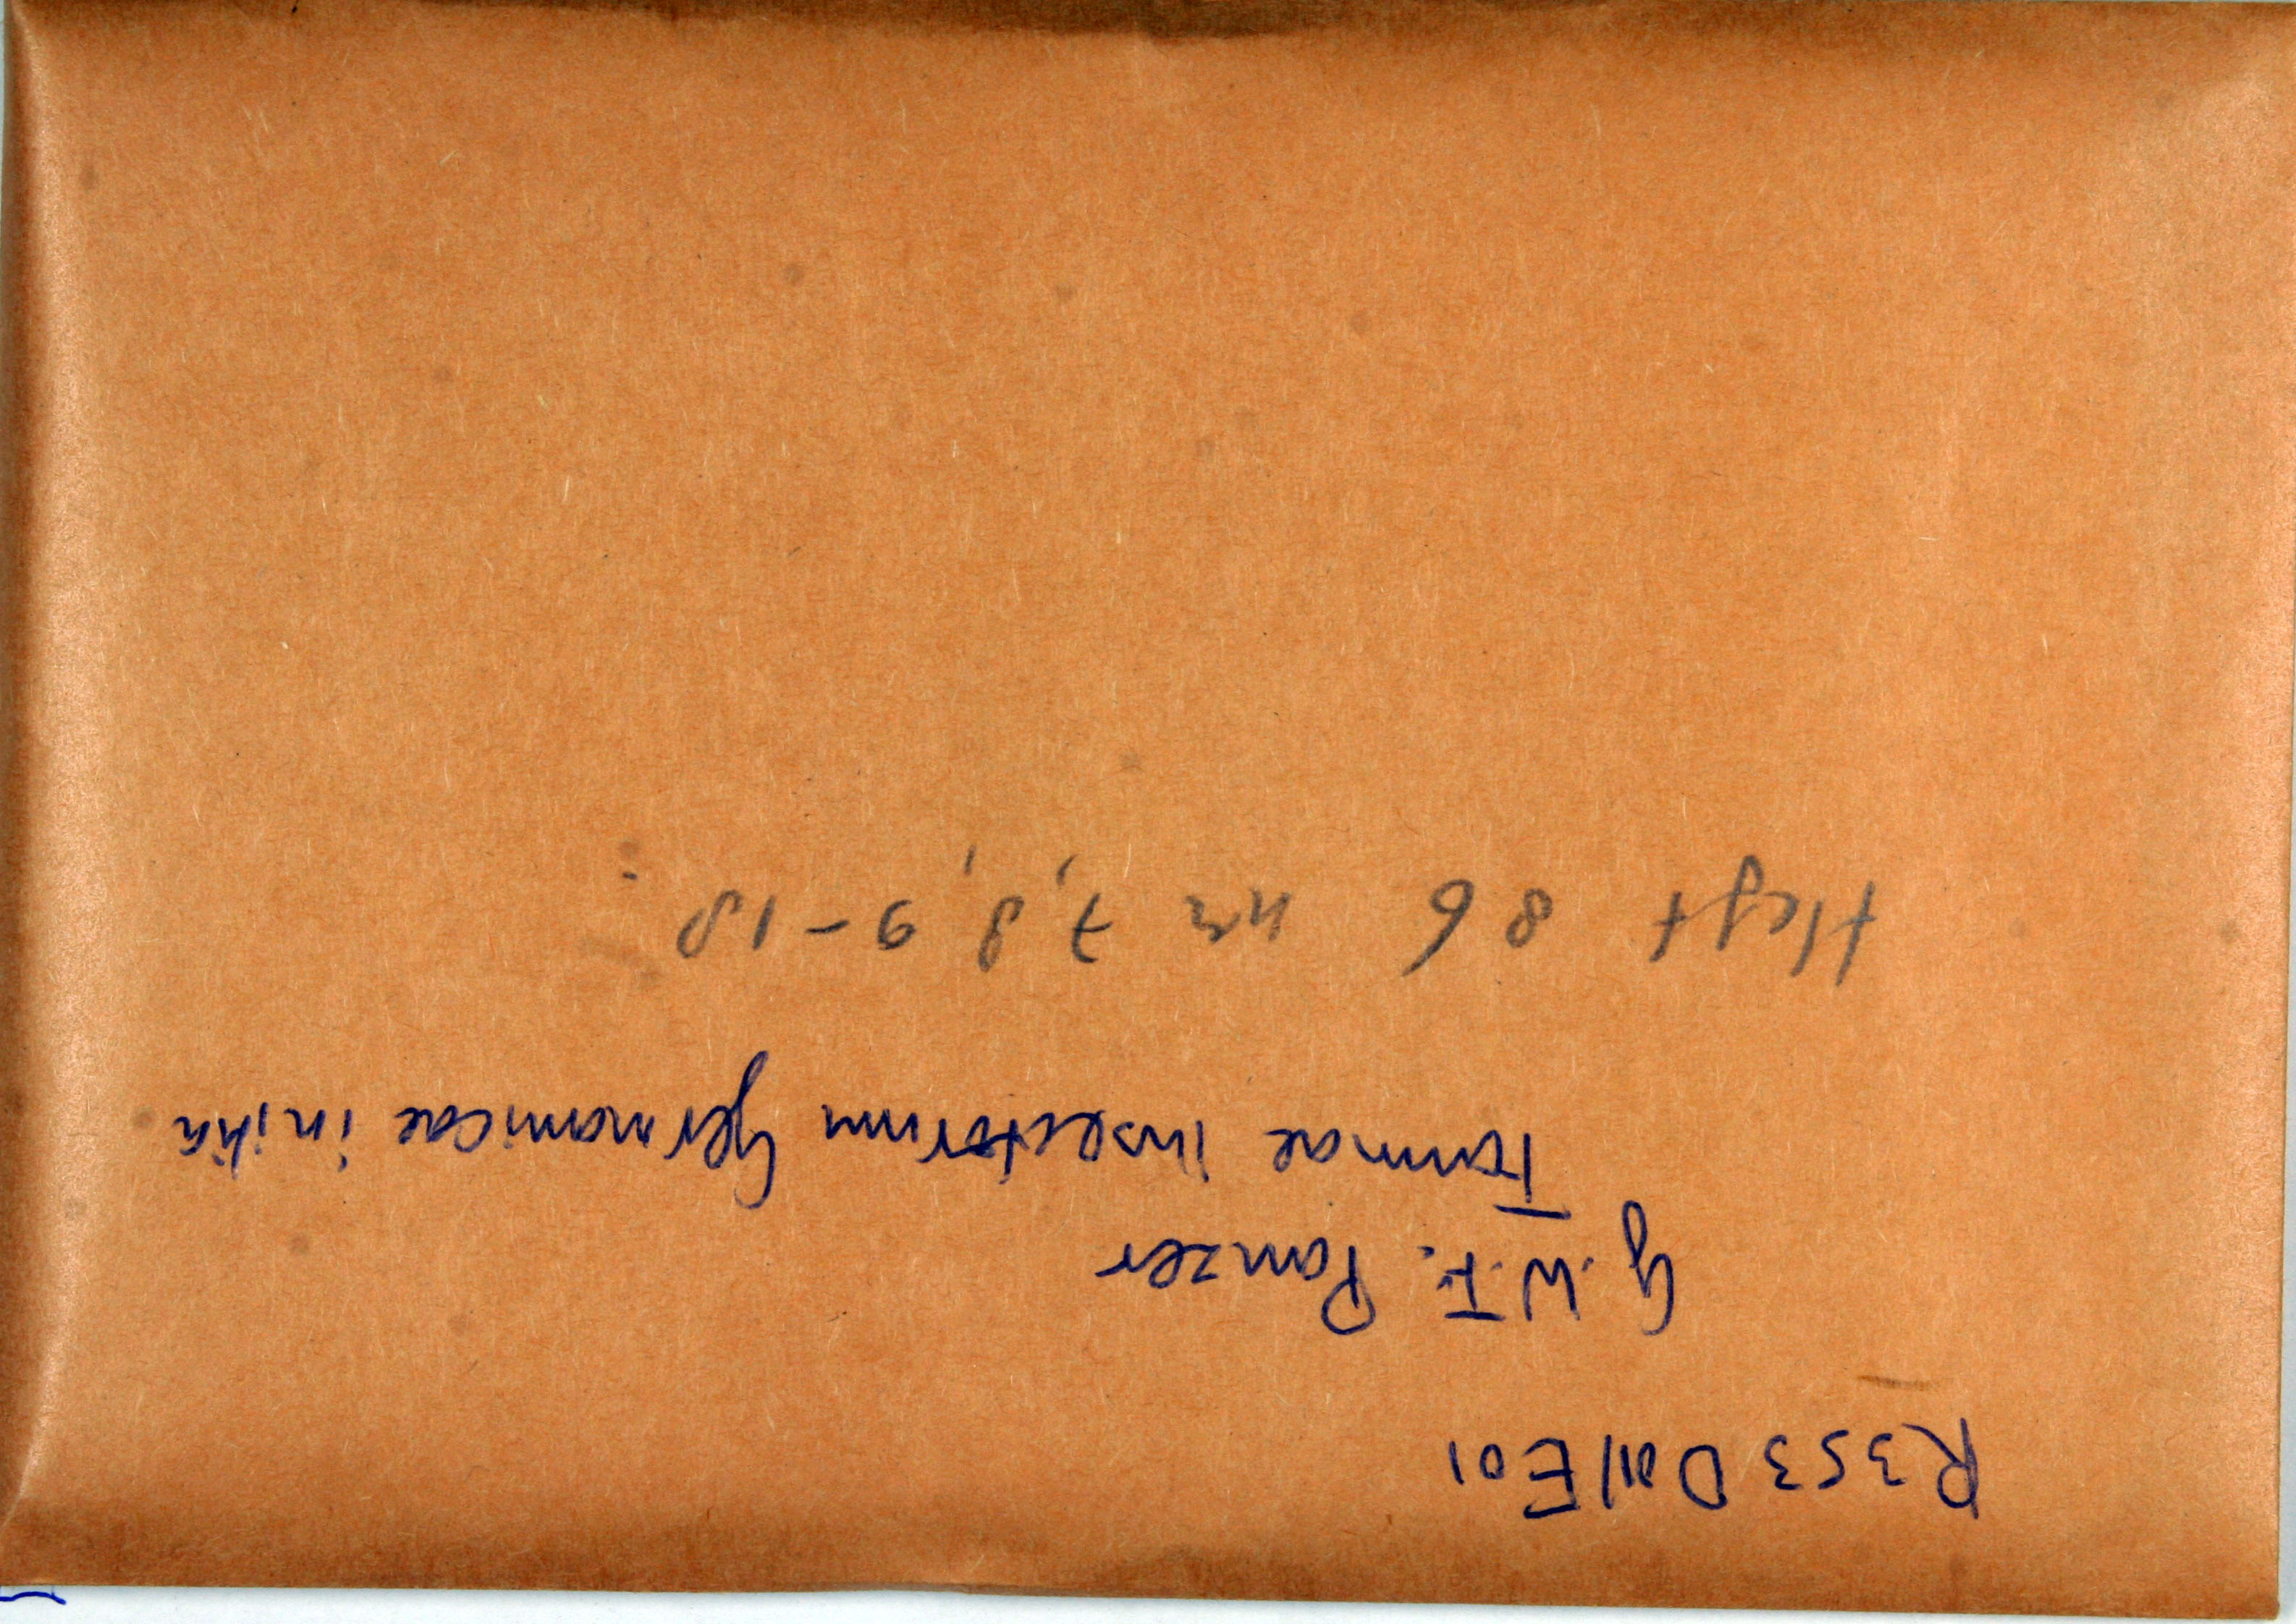 R353 Dol E01
G.W.F. Panzer
Faunae insectorum Germanicae initia
Heft 86 nr 7, 8, 9-18